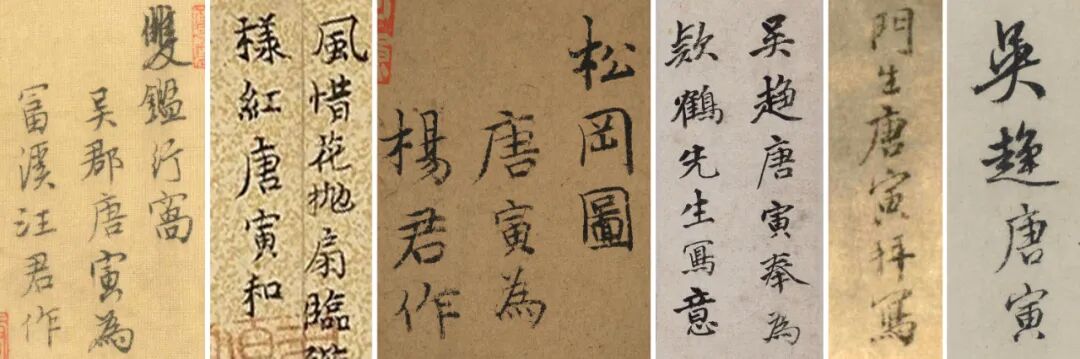 雙鑑行窩
吳郡唐寅為
富溪汪君作
風惜花拋扇臨
樣紅唐寅和
松岡圖
唐寅為
楊君作
吳趨唐寅奉為
欵鶴先生寫意
門生唐寅拜寫
吳趨唐寅